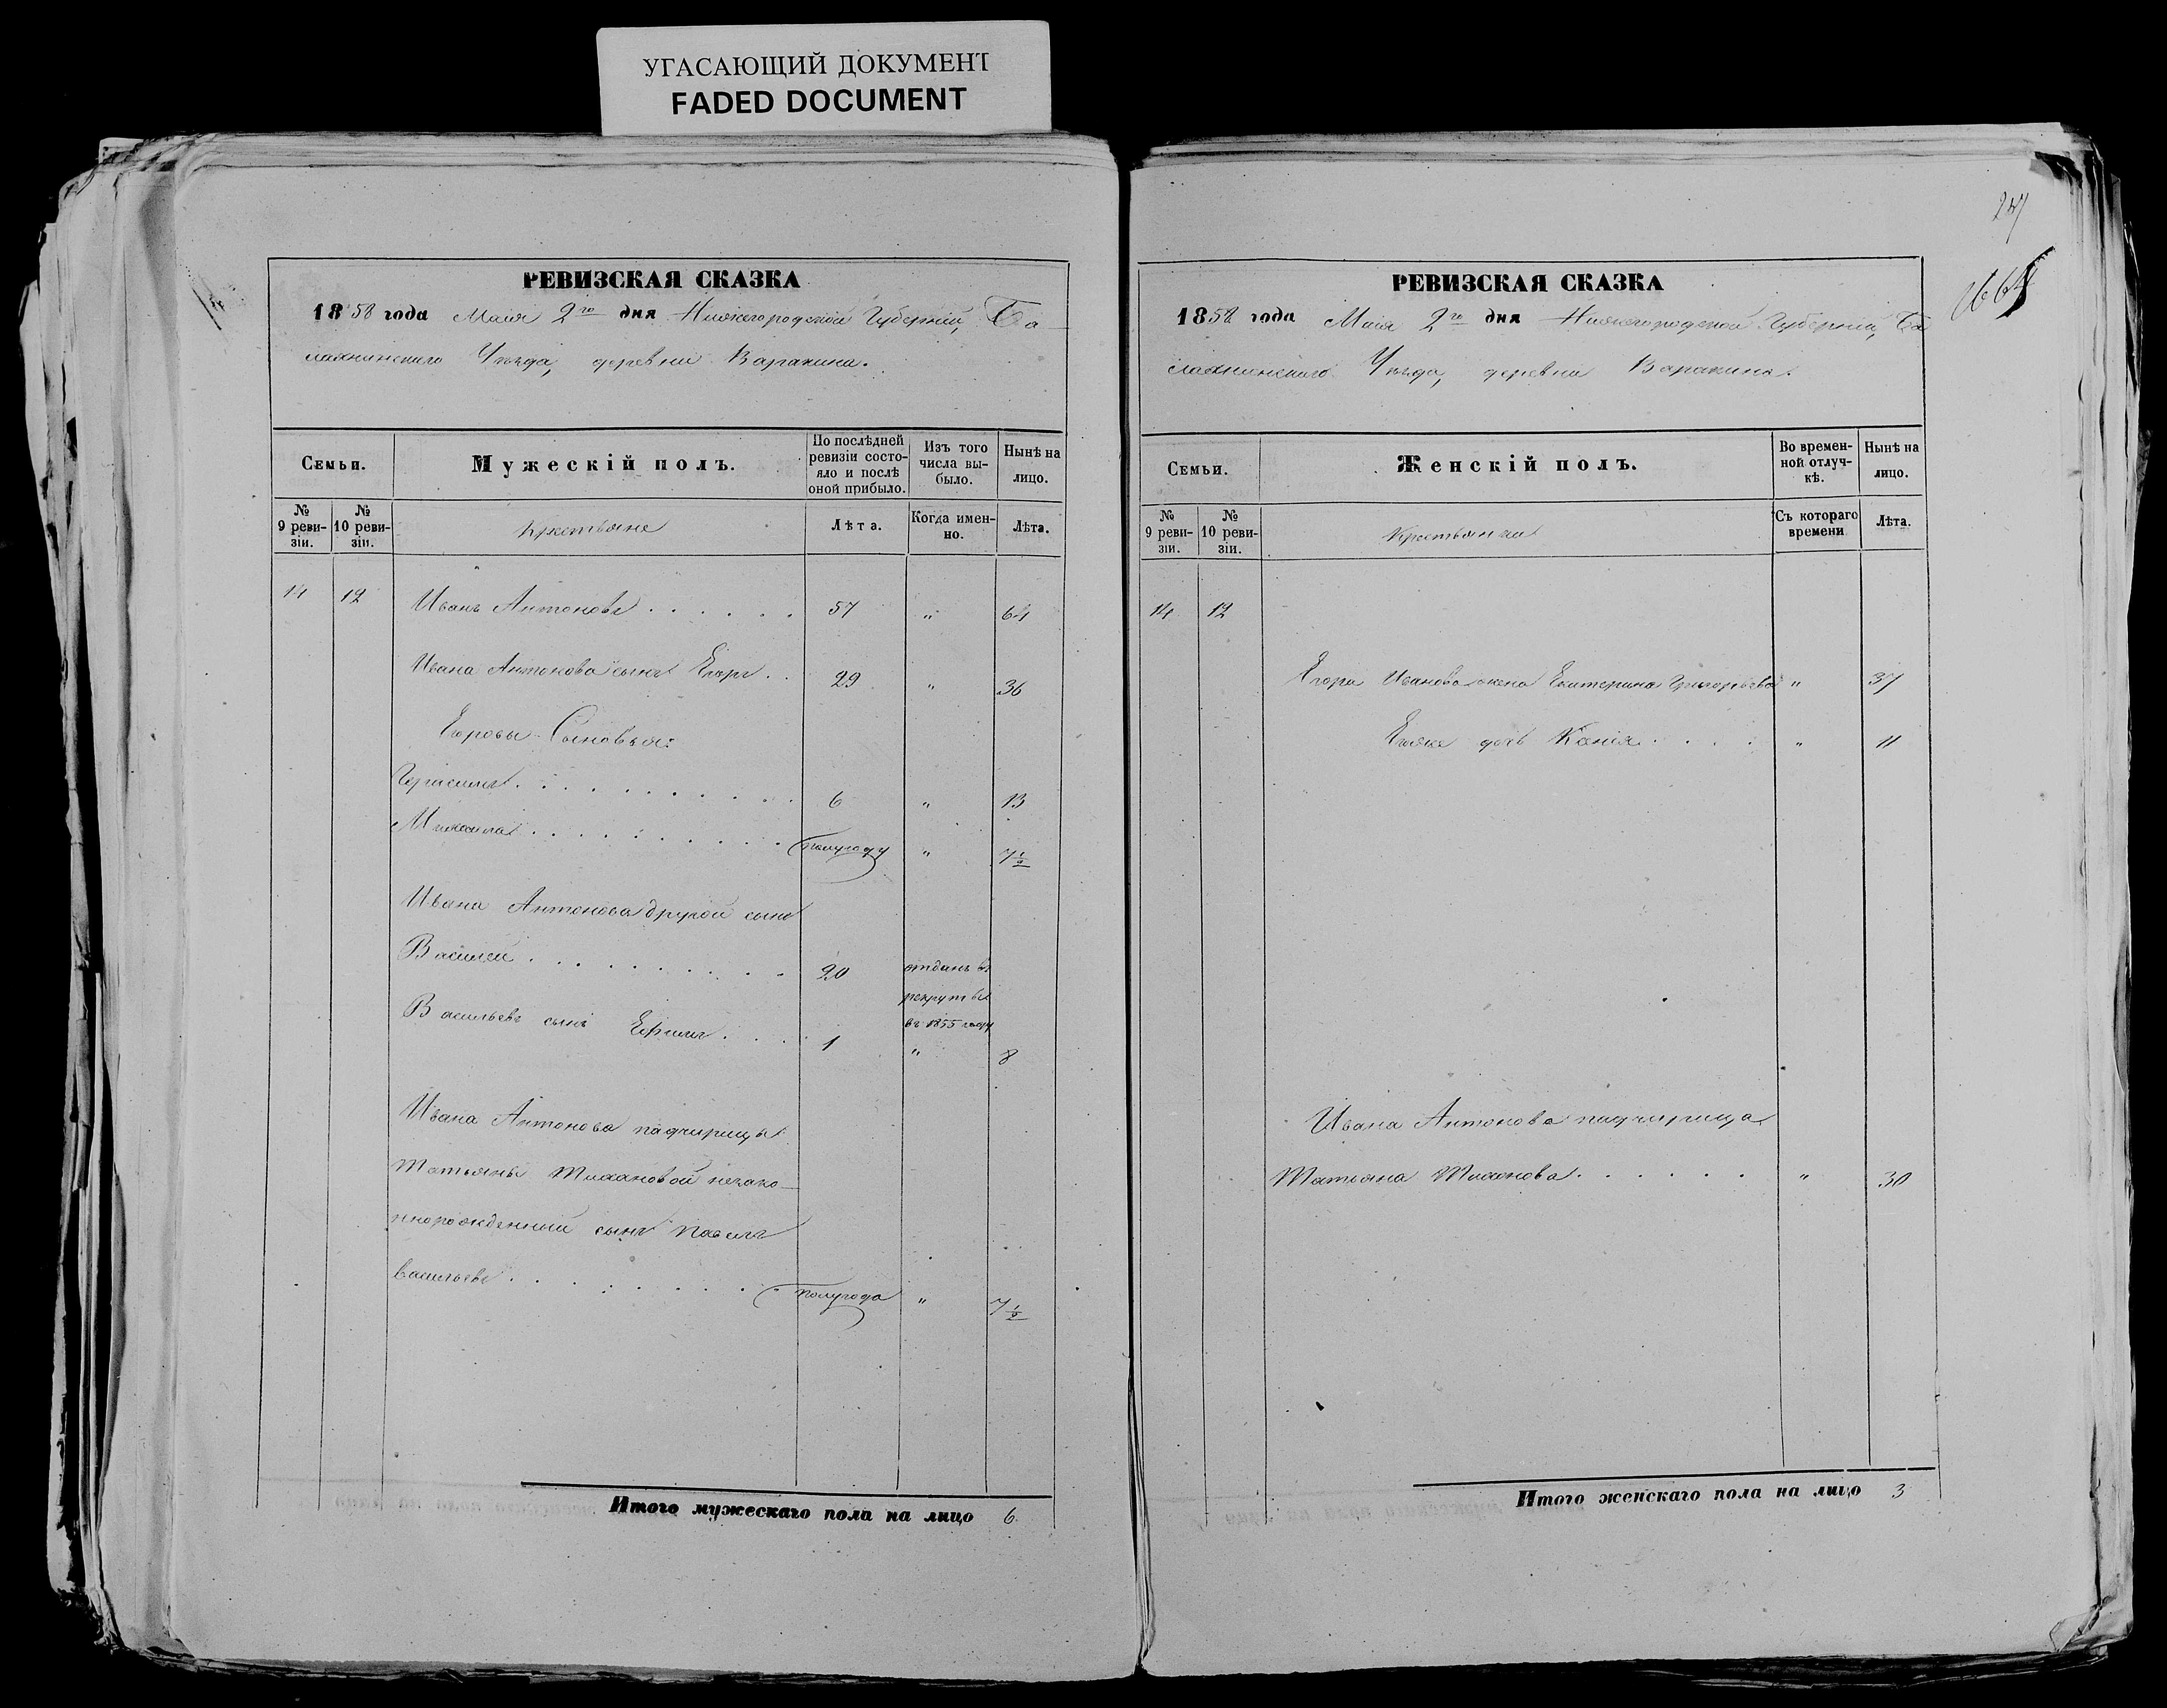 УГАСАЮЩИЙ ДОКУМЕНТ
FADED DOCUMENT
РЕВИЗСКАЯ СКАЗКА
1858 года Маія 2го дня Нижегородской Губерніи, Ба-
лахнинскаго Уѣзда, деревни Варакина.
Семьи.
Мужескій полъ.
По послѣдней ревизіи состояло и послѣ оной прибыло.
Изъ того числа выбыло.
Нынѣ на лицо.
№ 9 ревизіи.
№ 10 ревизіи.
Крестьяне
Лѣта.
Когда именно.
Лѣта.
14 12 Иванъ Антоновъ . . . . . . 57 " 64
Ивана Антонова сынъ Егоръ . . 29 " 36
Егоровы Сыновья:
Герасимъ . . . . . . . . . . 6 " 13
Михаила . . . . . . . . . . полугоду " 7 1/2
Ивана Антонова другой сынъ
Василей . . . . . . . . . 20 отданъ въ
рекруты
въ 1855 году
Васильевъ сынъ Ефимъ . . . 1 " 8
Ивана Антонова падчерицы
Татьяны Тихановой незако-
ннорожденный сынъ Павелъ
Васильевъ . . . . . . . полугода " 7 1/2
Итого мужескаго пола на лицо 6.
247
РЕВИЗСКАЯ СКАЗКА
1858 года Маія 2го дня Нижегородской Губерніи, Ба
лахнинскаго Уѣзда, деревни Варакина.
Семьи.
Женскій полъ.
Во временной отлучкѣ.
Нынѣ на лицо.
№ 9 ревизіи.
№ 10 ревизіи.
Крестьянки
Съ котораго времени
Лѣта.
14 12
Егора Иванова жена Екатерина Григорьева " 37
Егоже дочь Ксенія . . . . " 11
Ивана Антонова падчерица
Татьяна Тиханова . . . . . . " 30
Итого женскаго пола на лицо 3